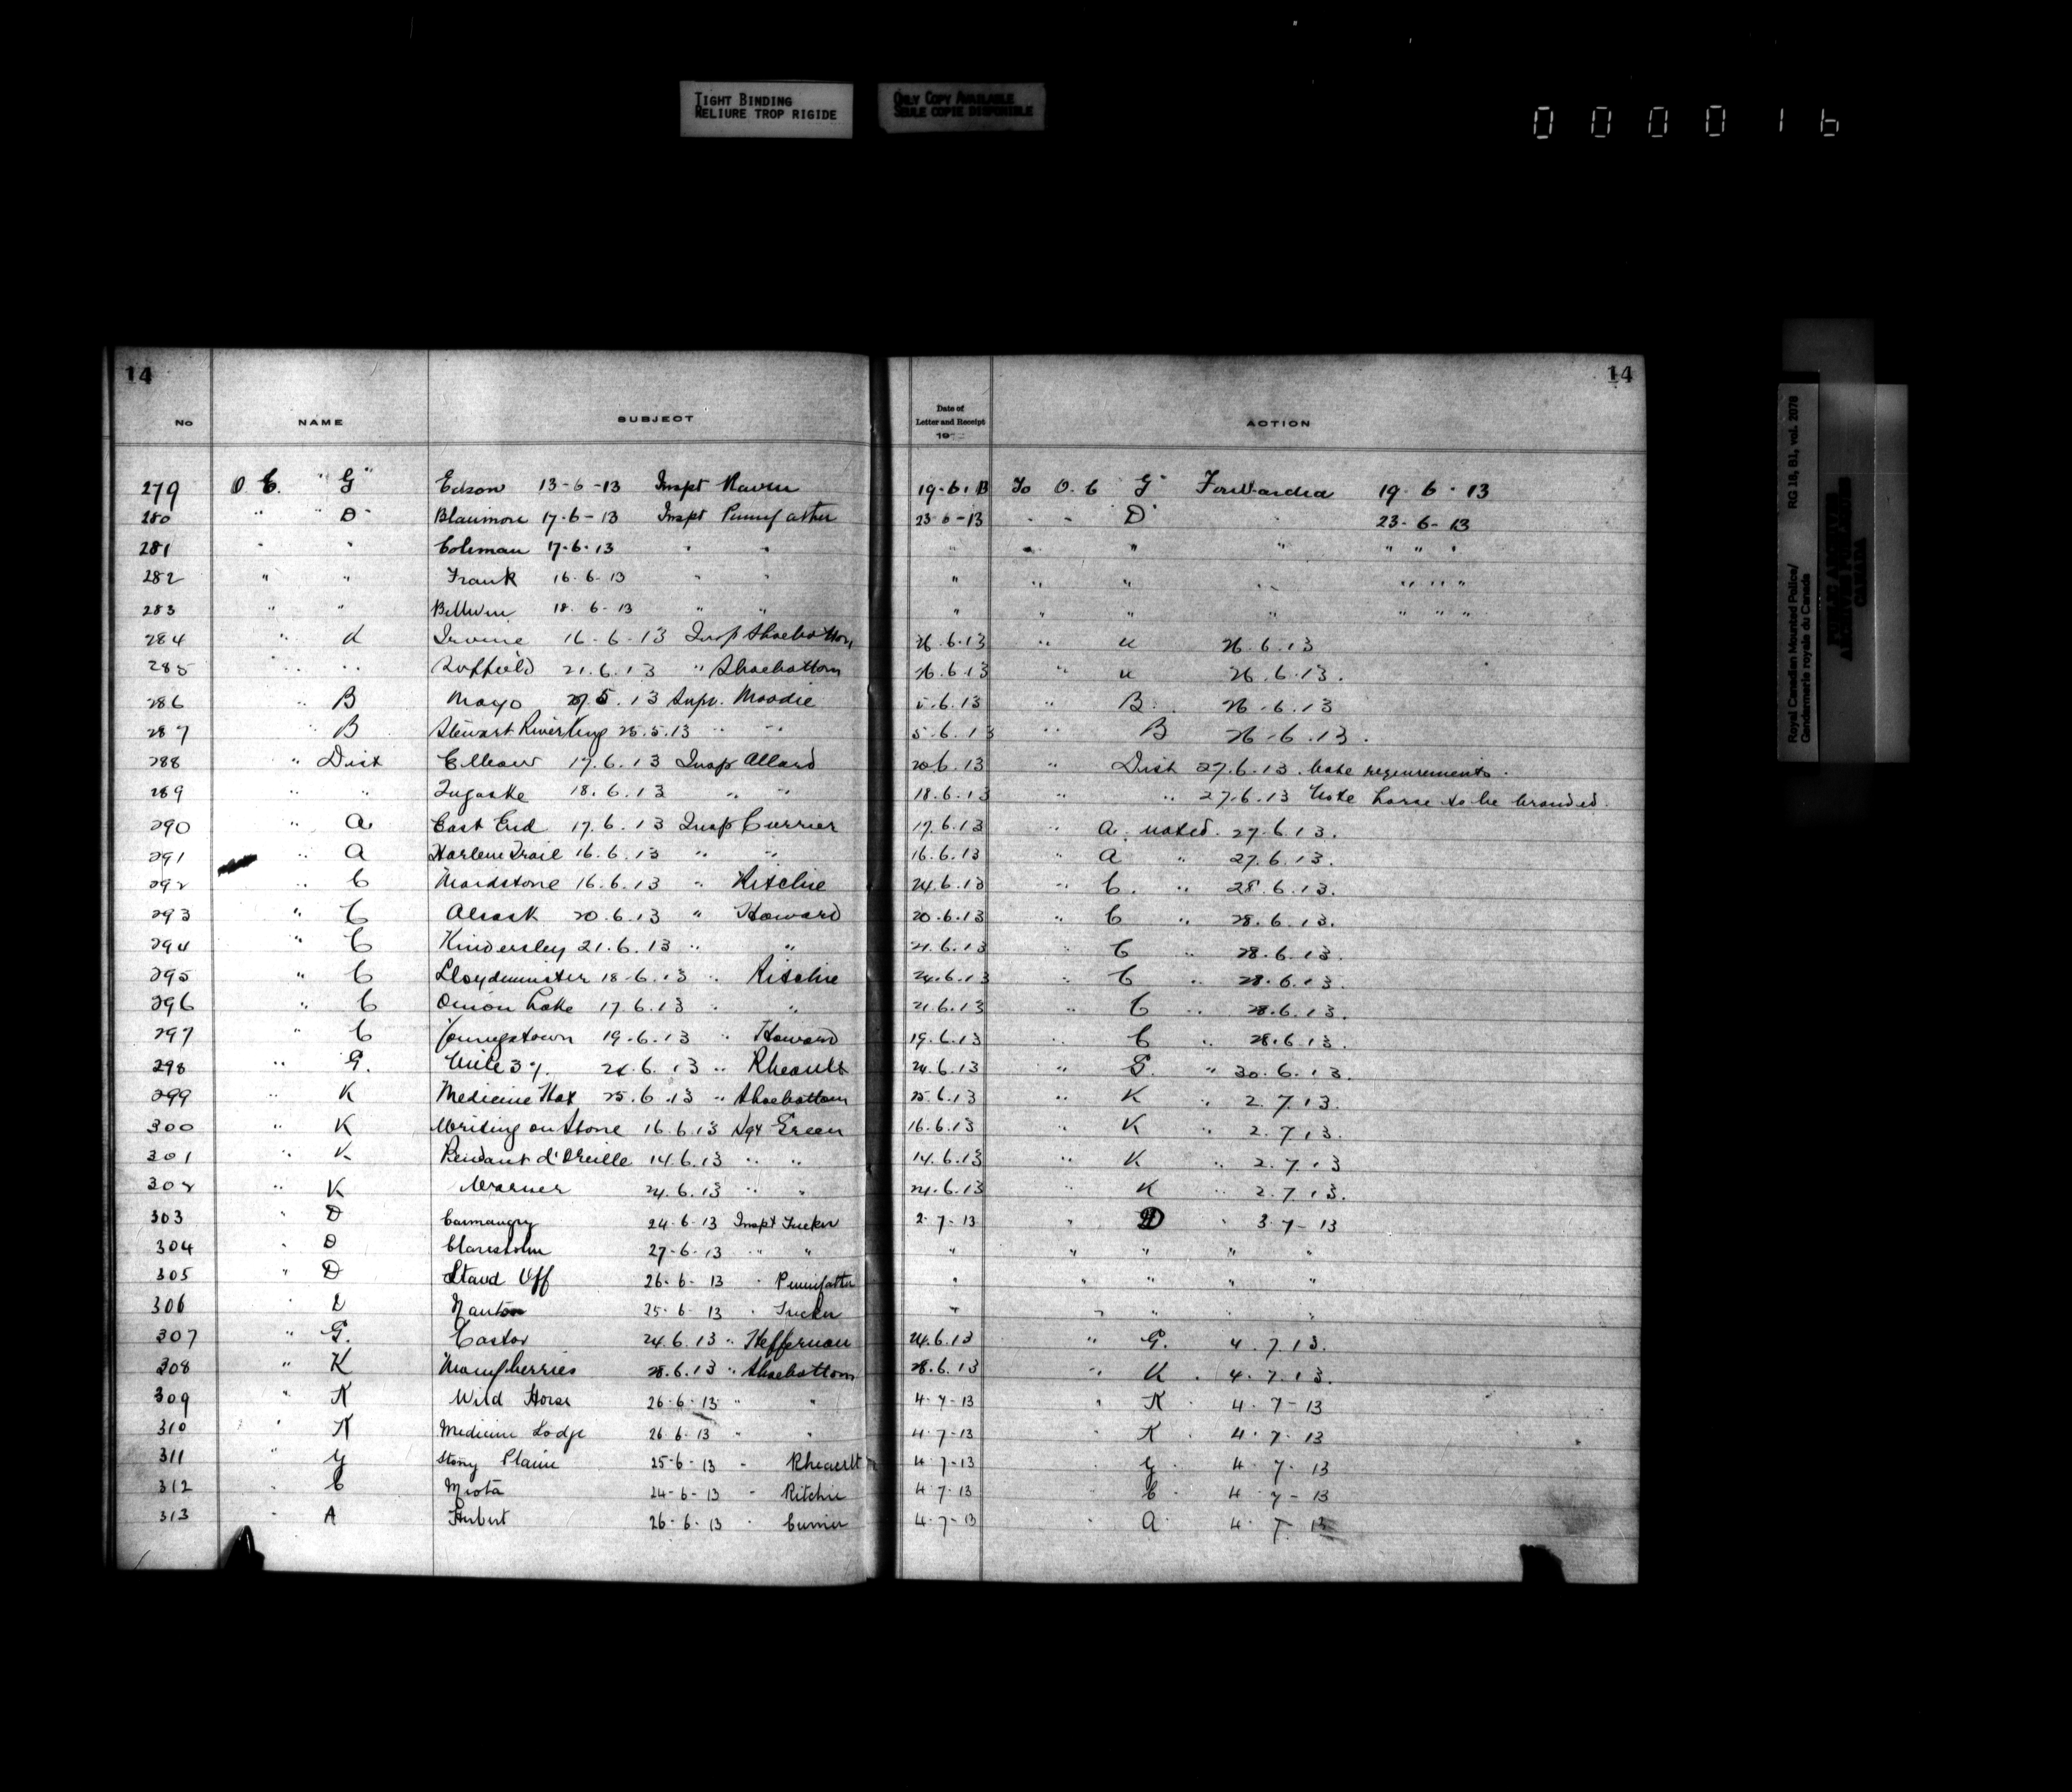 TIGHT BINDING
RELIURE TROP RIGIDE
ONLY COPY AVAILABLE
SEULE COPIE DISPONIBLE
0 0 0 0 1 6
14
14
No NAME SUBJECT Date of Letter and Receipt 19 ACTION
279 O. C. "G" Edson 13-6-13 Inspt Raven 19.6.13 To O.C "G" Forwarded 19.6.13
280 " "D" Blairmore 17-6-13 Inspt Pennefather 23-6-13 " " "D" " 23-6-13
281 " " Coleman 17-6-13 " " " " " " " " "
282 " " Frank 16-6-13 " " " " " " " " "
283 " " Bellevue 18-6-13 " " " " " " " " "
284 " K Irvine 16-6-13 Insp Shoebottom 26.6.13 " K 26.6.13
285 " " Suffield 21.6.13 " Shoebottom 26.6.13 " K 26.6.13.
286 " B Mayo 27.5.13 Supt. Moodie 5.6.13 " B. 26.6.13
287 " B Stewart River 25.5.13 " " 5.6.13 " B 26.6.13.
288 " Dist Elbow 17.6.13 Insp Allard 20.6.13 " Dist 27.6.13. Note requirements.
289 " " Tugaske 18.6.13 " " 18.6.13 " " 27.6.13 Note horse to be branded.
290 " A East End 17.6.13 Insp Currier 17.6.13 " A. noted. 27.6.13.
291 " A Harlem Trail 16.6.13 " " 16.6.13 " A " 27.6.13.
292 " C Maidstone 16.6.13 " Ritchie 24.6.13 " C. " 28.6.13.
293 " C Alsask 20.6.13 " Howard 20.6.13 " C " 28.6.13.
294 " C Kindersley 21.6.13 " " 21.6.13 " C " 28.6.13.
295 " C Lloydminster 18.6.13 " Ritchie 24.6.13 " C " 28.6.13.
296 " C Onion Lake 17.6.13 " " 21.6.13 " C " 28.6.13.
297 " C Youngstown 19.6.13 " Howard 19.6.13 " C " 28.6.13.
298 " G. Mile 37. 24.6.13 " Rheault 24.6.13 " G. " 30.6.13.
299 " K Medicine Hat 25.6.13 " Shoebottom 25.6.13 " K " 2.7.13.
300 " K Writing on Stone 16.6.13 Sgt Green 16.6.13 " K " 2.7.13.
301 " K Pendant d'Oreille 14.6.13 " " 14.6.13 " K " 2.7.13
302 " K Warner 24.6.13 " " 24.6.13 " K " 2.7.13.
303 " D Carmangay 24-6-13 Inspt Tucker 2-7-13 " D " 3-7-13
304 " D Claresholm 27-6-13 " " " " " " "
305 " D Stand Off 26-6-13 " Pennefather " " " " "
306 " D Nanton 25-6-13 " Tucker " " " "
307 " G. Castor 24.6.13 " Heffernan 24.6.13 " G. 4.7.13.
308 " K Manyberries 28.6.13 " Shoebottom 28.6.13 " K . 4.7.13.
309 " K Wild Horse 26-6-13 " " 4-7-13 " K 4-7-13
310 " K Medicine Lodge 26-6-13 " " 4-7-13 " K 4-7-13
311 " G Stony Plain 25-6-13 " Rheault 4-7-13 " G 4-7-13
312 " C Meota 24-6-13 " Ritchie 4-7-13 " C 4-7-13
313 " A Herbert 26-6-13 " Currier 4-7-13 " A 4-7-13
Royal Canadian Mounted Police/ RG 18, B1, vol. 2078
Gendarmerie royale du Canada
PUBLIC ARCHIVES
ARCHIVES PUBLIQUES
CANADA